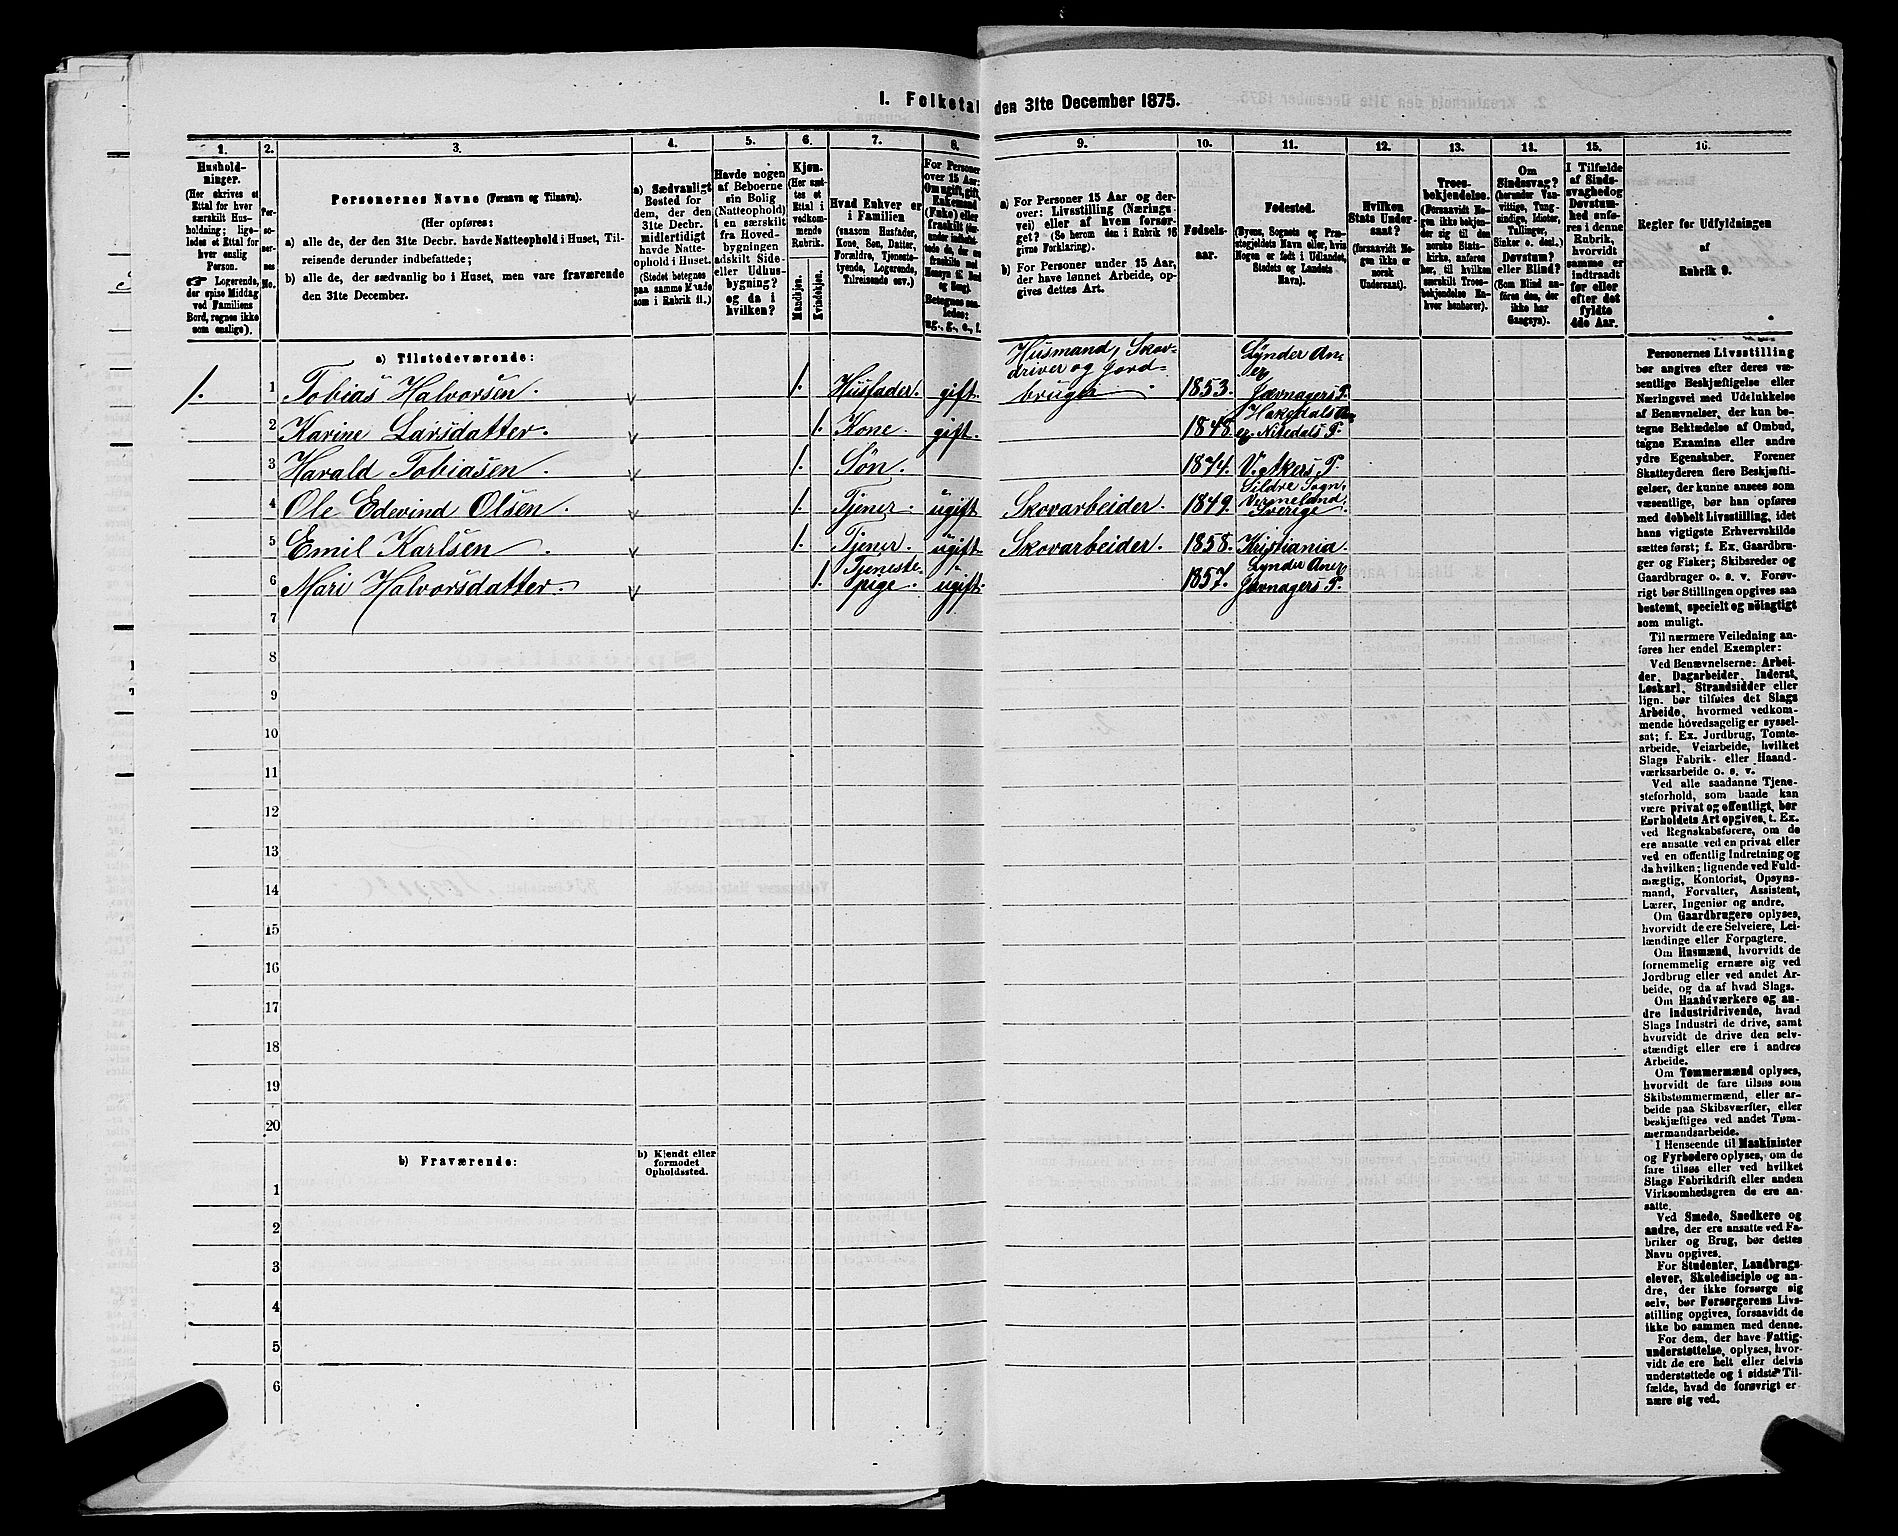 I. Folketal den 31te December 1875.
1. 2. 3. 4. 5. 6. 7. 8. 9. 10. 11. 12. 13. 14. 15. 16.
Husholdninger.
(Her skrives et
Ettal for hver
særskilt Hus-
holdning; lige-
ledes et Ettal for
hver enslig
Person.
Logerende,
der spise Middag
ved Familiens
Bord, regnes ikke
som enslige).
Personernes No.
Personernes Navne (Fornavn og Tilnavn).
(Her opføres:
a) alle de, der den 31te Decbr. havde Natteophold i Huset, Til-
reisende derunder indbefattede;
b) alle de, der sædvanlig bo i Huset, men vare fraværende
den 31te December.
a) Sædvanligt
Bosted for
dem, der den
31te Decbr.
midlertidigt
havde Natte-
ophold i Huset.
(Stedet betegnes
paa samme Maade
som i Rubrik 11.)
Havde nogen
af Beboerne
sin Bolig
(Natteophold)
i en særskilt
fra Hoved-
bygningen
adskilt Side-
eller Udhus-
bygning?
og da i
hvilken?
Kjøn.
(Her sæt-
tes et
Ettal i
vedkom-
mende
Rubrik.
Mandkjøn.
Kvindekjøn.
Hvad Enhver er
i Familien
(saasom Husfader,
Kone, Søn, Datter,
Forældre, Tjeneste-
tyende, Logerende,
Tilreisende osv.)
For Personer
over 15 Aar:
Om ugift, gift,
Enkemand
(Enke) eller
fraskilt
Betegnes saa-
ledes:
ug., g., e., f.
a) For Personer 15 Aar og der-
over: Livsstilling (Nærings-
vei) eller af hvem forsør-
get? (Se herom den i Rubrik 16
givne Forklaring).
b) For Personer under 15 Aar,
der have lønnet Arbeide, op-
gives dettes Art.
Fødsels-
aar.
Fødested.
(Byens, Sognets og Præ-
stegjeldets Navn eller, hvis
Nogen er født i Udlandet,
Stedets og Landets
Navn).
Hvilken
Stats Under-
saat?
(forsaavidt No-
gen ikke er
norsk
Undersaat).
Troes-
bekjendelse.
(Forsaavidt No-
gen ikke bekjen-
der sig til den
norske Stats-
kirke, anføres
her, til hvilken
særskilt Troes-
bekjendelse En-
hver henhører).
Om
Sindssvag?
(herunder Van-
vittige, Tung-
sindige, Idioter,
Tullinger,
Sinker o. desl.).
Døvstum?
eller Blind?
(Som Blind an-
føres den, der
ikke har
Gangsyn).
I Tilfælde
af Sinds-
svaghed og
Døvstum-
hed anfø-
res i denne
Rubrik,
hvorvidt
samme er
indtraadt
før eller
efter det
fyldte
4de Aar.
Regler før Udfyldningen
af
Rubrik 9.
a) Tilstedeværende:
1. 1 Tobias Halvorsen. 1. Husfader. gift. Husmand, Skov-
driver og Jord-
bruger 1853.
Jævnagers P.
2 Karine Larsdatter. 1. Kone. gift. 1848. Hakedals
Nitedals P.
3 Harald Tobiasen. 1. Søn. 1874. V. Akers P.
4 Ole Edevind Olsen. 1. Tjener. ugift Skovarbeider. 1849. Sogn.
Sverige.
5 Emil Karlsen. 1. Tjener. ugift. Skovarbeider. 1858. Kristiania.
6 Mari Halvorsdatter. 1. Tjeneste-
pige. ugift. 1857.
Jævnagers P.
7
8
9
10
11
12
13
14
15
16
17
18
19
20
b) Fraværende:
b) Kjendt eller
formodet
Opholdssted.
1
2
3
4
5
6
Personernes Livsstilling
bør angives efter deres væ-
sentlige Beskjæftigelse eller
Næringsvei med Udelukkelse
af Benævnelser, der kun be-
tegne Beklædelse af Ombud,
tagne Examina eller andre
ydre Egenskaber. Forener
Skatteyderen flere Beskjæfti-
gelser, der kunne ansees som
væsentlige, bør han opføres
med dobbelt Livsstilling, idet
hans vigtigste Erhvervskilde
sættes først; f. Ex. Gaardbru-
ger og Fisker; Skibsreder og
Gaardbruger o. s. v. Forøv-
rigt bør Stillingen opgives saa
bestemt, specielt og nöiagtigt
som muligt.
Til nærmere Veiledning an-
føres her endel Exempler:
Ved Benævnelserne: Arbei-
der, Dagarbeider, Inderst,
Løskarl, Strandsidder eller
lign. bør tilføies det Slags
Arbeide, hvormed vedkom-
mende hovedsagelig er syssel-
sat; f. Ex. Jordbrug, Tomte-
arbeide, Veiarbeide, hvilket
Slags Fabrik- eller Haand-
værksarbeide o. s. v.
Ved alle saadanne Tjene-
steforhold, som baade kan
være privat og offentligt, bør
Forholdets Art opgives, t. Ex.
ved Regnskabsførere, om de
ere ansatte ved en privat eller
ved en offentlig Indretning og
da hvilken; lignende ved Fuld-
mægtig, Kontorist, Opsyns-
mand, Forvalter, Assistent,
Lærer, Ingeniør og andre.
Om Gaardbrugere oplyses,
hvorvidt de ere Selveiere, Lei-
lændinge eller Forpagtere.
Om Husmænd, hvorvidt de
fornemmelig ernære sig ved
Jordbrug eller ved andet Ar-
beide, og da af hvad Slags.
Om Haandværkere og an-
dre Industridrivende, hvad
Slags Industri de drive, samt
hvorvidt de drive den selv-
stændigt eller ere i andres
Arbeide.
Om Tømmermænd oplyses,
hvorvidt de fare tilsøs som
Skibstømmermænd, eller ar-
beide paa Skibsværfter, eller
beskjæftiges ved andet Tøm-
mermandsarbeide.
I Henseende til Maskinister
og Fyrbødere oplyses, om de
fare tilsøs eller ved hvilket
Slags Fabrikdrift eller anden
Virksomhedsgren de ere an-
satte.
Ved Smede, Snedkere og
andre, der ere ansatte ved Fa-
briker og Brug, bør dettes
Navn opgives.
For Studenter, Landbrugs-
elever, Skoledisciple og an-
dre, der ikke forsørge sig
selv, bør Forsørgerens Livs-
stilling opgives, forsaavidt de
ikke bo sammen med denne.
For dem, der have Fattig-
understøttelse, oplyses, hvor-
vidt de ere helt eller delvis
understøttede og i sidste Til-
fælde, hvad de forøvrigt er-
nære sig ved.